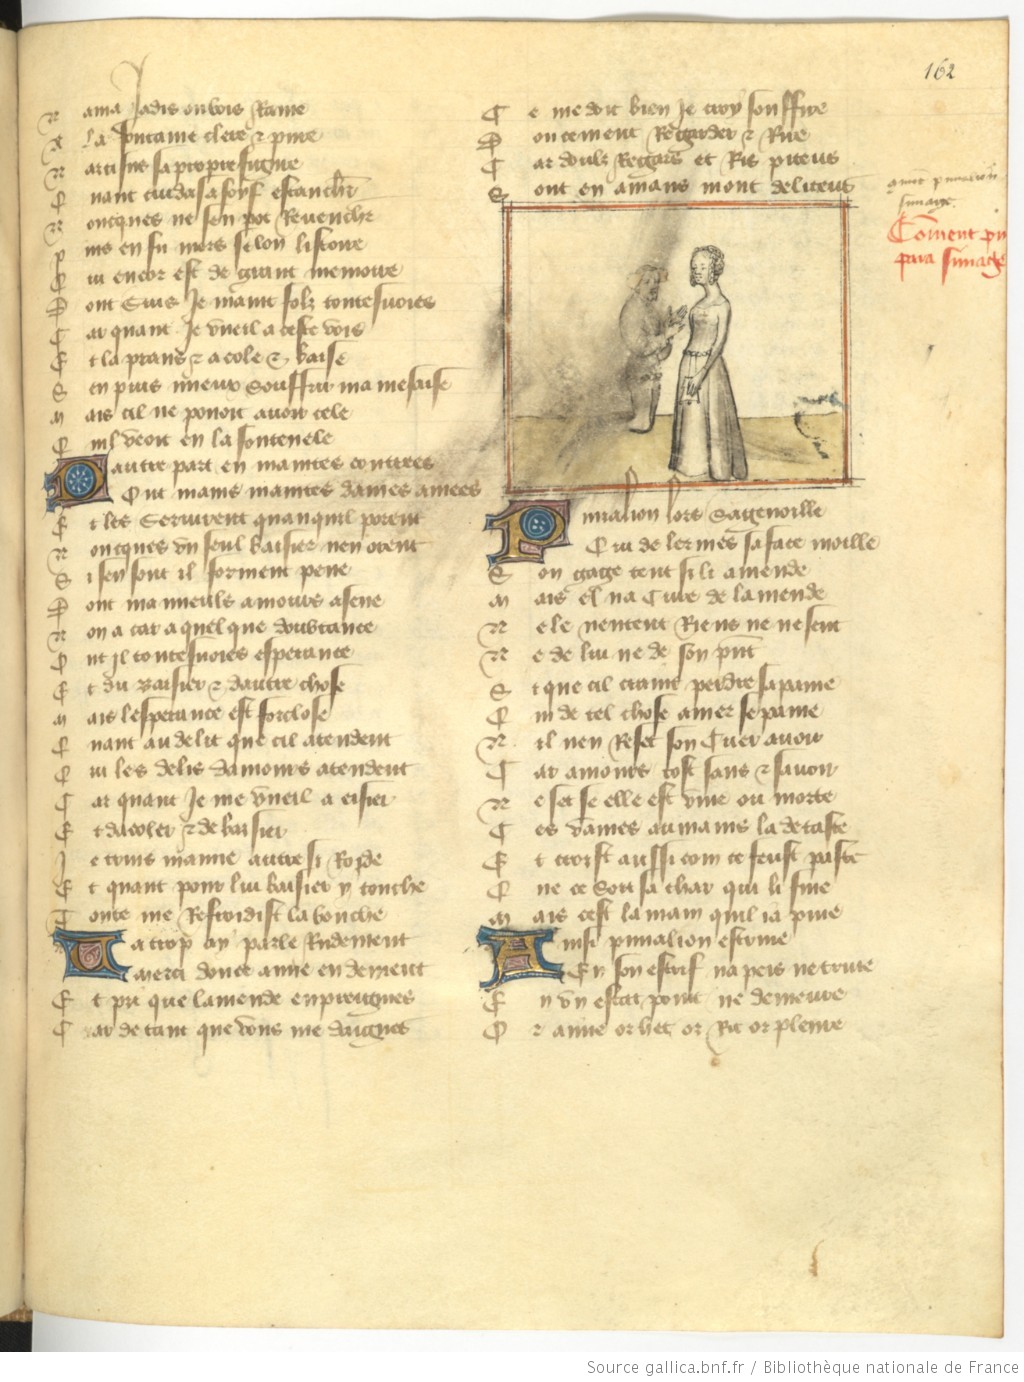 162
N ama Jadis ou bois Rame
A la fontaine clere z pure
N arcisus sa propre figure
Q uant cuida sa soif estancher
N oncques ne sen pot Revencher
P uis en fu mors selon listoire
Q ui encor est de grant memoire
D ont Suis Je mains folz toutesuoies
C ar quant Je vueil a ceste vois
E t la prans z acole z baise
S en puis mieux Souffrir ma mesaise
M ais cil ne pouoit auoir cele
Q uil veoit en la fontenele
D autre part en maintes contrees
O nt mains maintes dames amees
E t les Seruirent quanquil porent
N oncques vn seul baisier nen orent
S i sen sont il forment pene
D ont ma mieulx amours asene
N on a car a quelque doubtance
O nt jl toutesuoies esperance
E t du Baisier z dautre chose
M ais lesperance est forclose
Q uant au delit que cil atendent
Q ui les delis damours atendent
C ar quant Je me vueil a eisier
E t dacoler z de baisier
J e truis mamie autresi Roide
E t quant pour lui baisier y touche
T oute me Refroidist la bouche
T a trop ay parle Rudement
Merci douce amie en dement
E t pri que lamende en preugnes
C ar de tant que vous me daignes
C e me doit bien Je croy souffire
D oucement Regarder z Rire
C ar doulz Regars et Ris piteus
S ont en amans mont deliteus
Coment py
pria symage
P imalion lors Sagenoille
Q ui de lermes sa face moille
S on gage tent si li amende
M ais el na Cure de lamende
N ele nentent Riens ne ne sent
N e de lui ne de son pnt
S i que cil craint perdre sa paine
Q ui de tel chose amer se paine
N il nen Reset son Cuer auoir
C ar amours tost sans z sauoir
N e set se elle est viue ou morte
C es vaines au mains la detaste
E t croist aussi com ce feust paste
Q ue ce Soit sa char qui li fuie
M ais cest la main quil i a puie
A insi pimalion estriue
En son estrif na pais ne triue
E n vn estat point ne demeure
O r aime or het or Rit or pleure
Source gallica.bnf.fr / Bibliothèque nationale de France